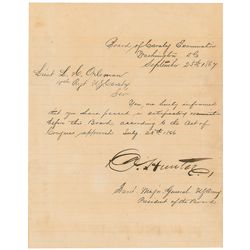 Board of Cavalry Examination
Washington D.C.
September 25th 1867
Lieut L. H. Orleman
10th Regt U.S. Cavalry
Sir
You are hereby informed
that you have passed a satisfactory
before this Board according to the Act of
Congress approved July 28th 1866
D. Hunter,
Major General U.S. Army
President of the Board